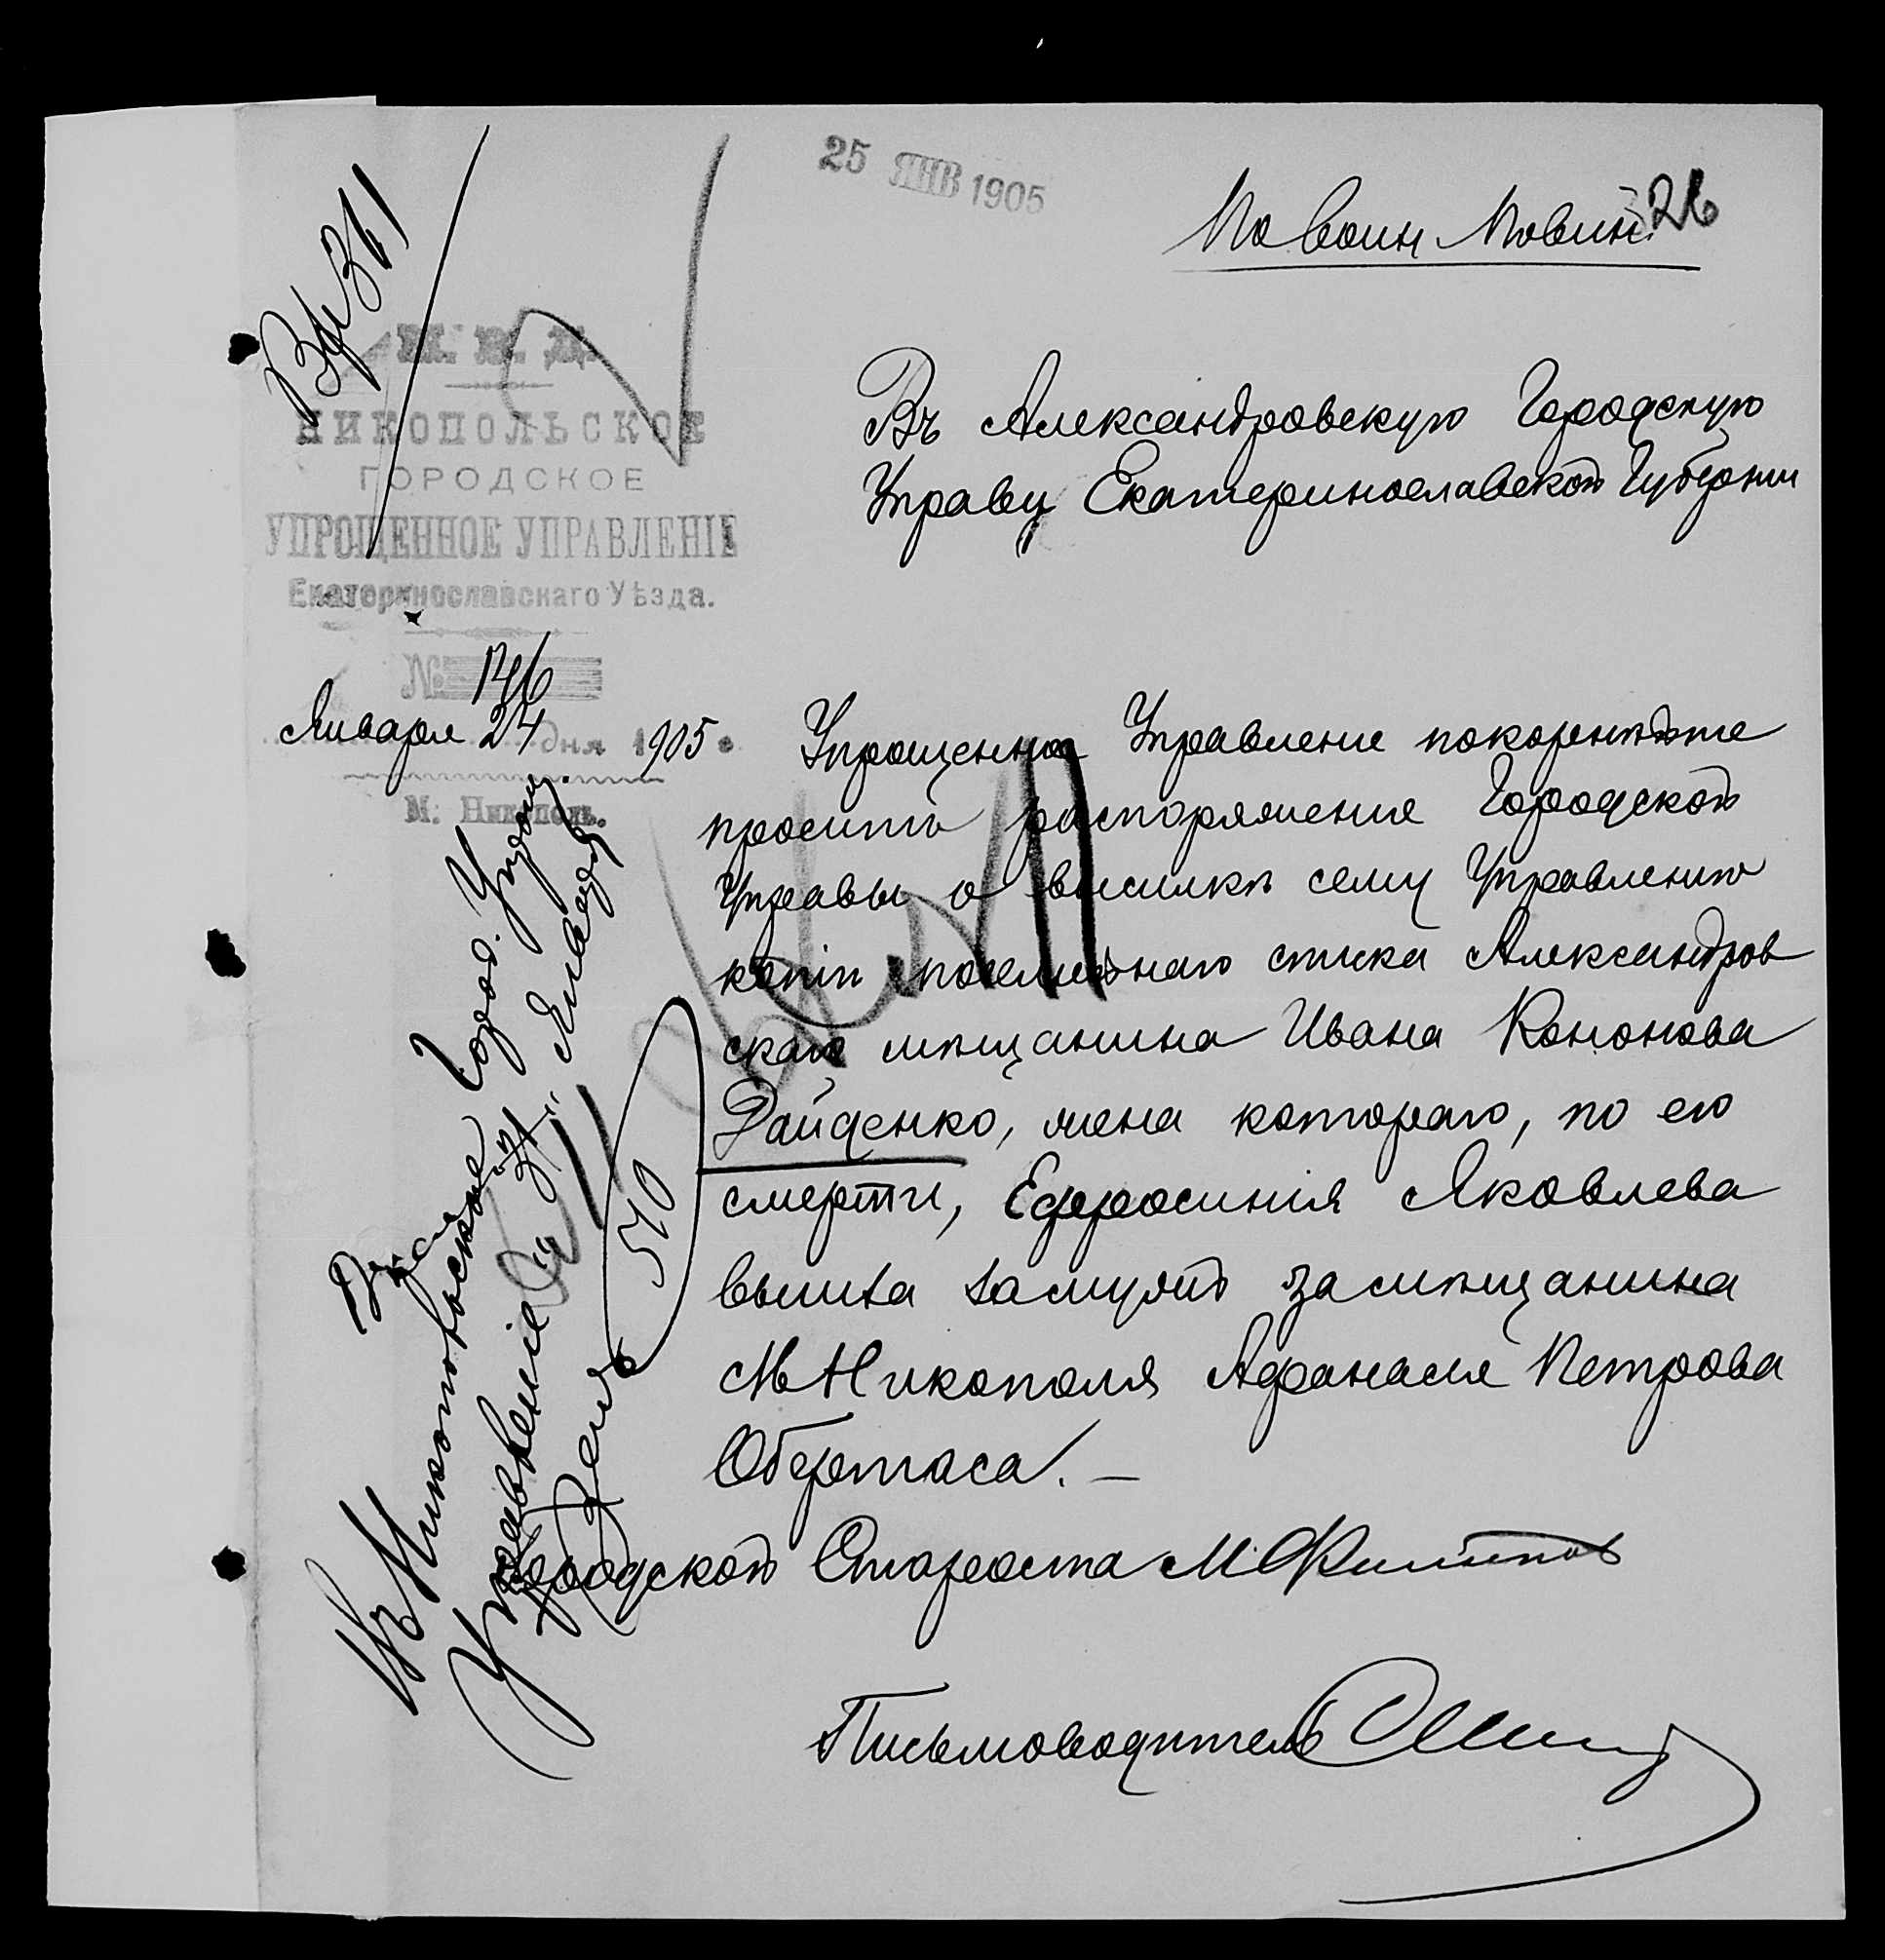 25 ЯНВ 1905
По воин повин.
26
Вх 361
М. В. Д.
НИКОПОЛЬСКОЕ
ГОРОДСКОЕ
УПРОЩЕННОЕ УПРАВЛЕНІЕ
Екатеринославскаго Уѣзда.
№ 146
Января 24 дня 1905 г.
М. Никополь.
Въ Александровскую Городскую
Управу Екатеринославской Губерніи
Упрощенное Управленіе покорнѣйше
проситъ распоряженія Городской
Управы о высылкѣ сему Управленію
копіи посемейнаго списка Александров
скаго мѣщанина Ивана Кононова
Дайденко, жена котораго, по его
смерти, Ефросинія Яковлева
вышла замужъ за мѣщанина
М Никополя Афанасія Петрова
Обертаса. —
Городской Староста М. Филиппов
Письмоводитель
Город. Упрощ.
Въ Никопольское
Управленіе 31 Января
510